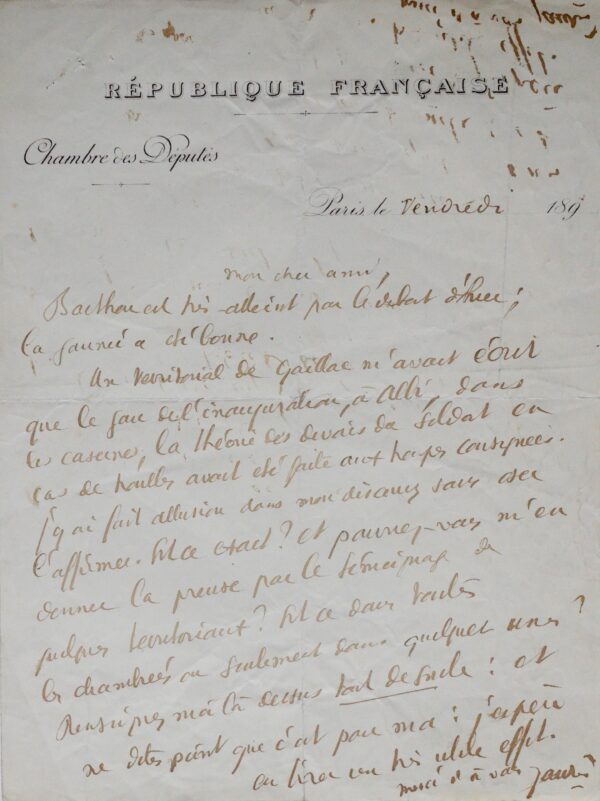 RÉPUBLIQUE FRANÇAISE
Chambre des Députés
Paris le Vendredi 189
mon cher ami,
Barthou est très atteint par le débat d'hier ;
la journée a été bonne.
Un territorial de Gaillac m'avait écrit
que le jour de l'inauguration, à Albi, dans
les casernes, la théorie des devoirs du soldat en
cas de troubles avait été faite aux troupes consignées.
J'y ai fait allusion dans mon discours sans oser
l'affirmer. Est ce exact ? et pourriez-vous m'en
donner la preuve par le témoignage de
quelques territoriaux ? Est ce dans toutes
les chambrées ou seulement dans quelques unes ?
Renseignez moi là dessus tout de suite : et
ne dites point que c'est pour moi : j'espère
en tirer un très utile effet.
merci et à vous Jaurès